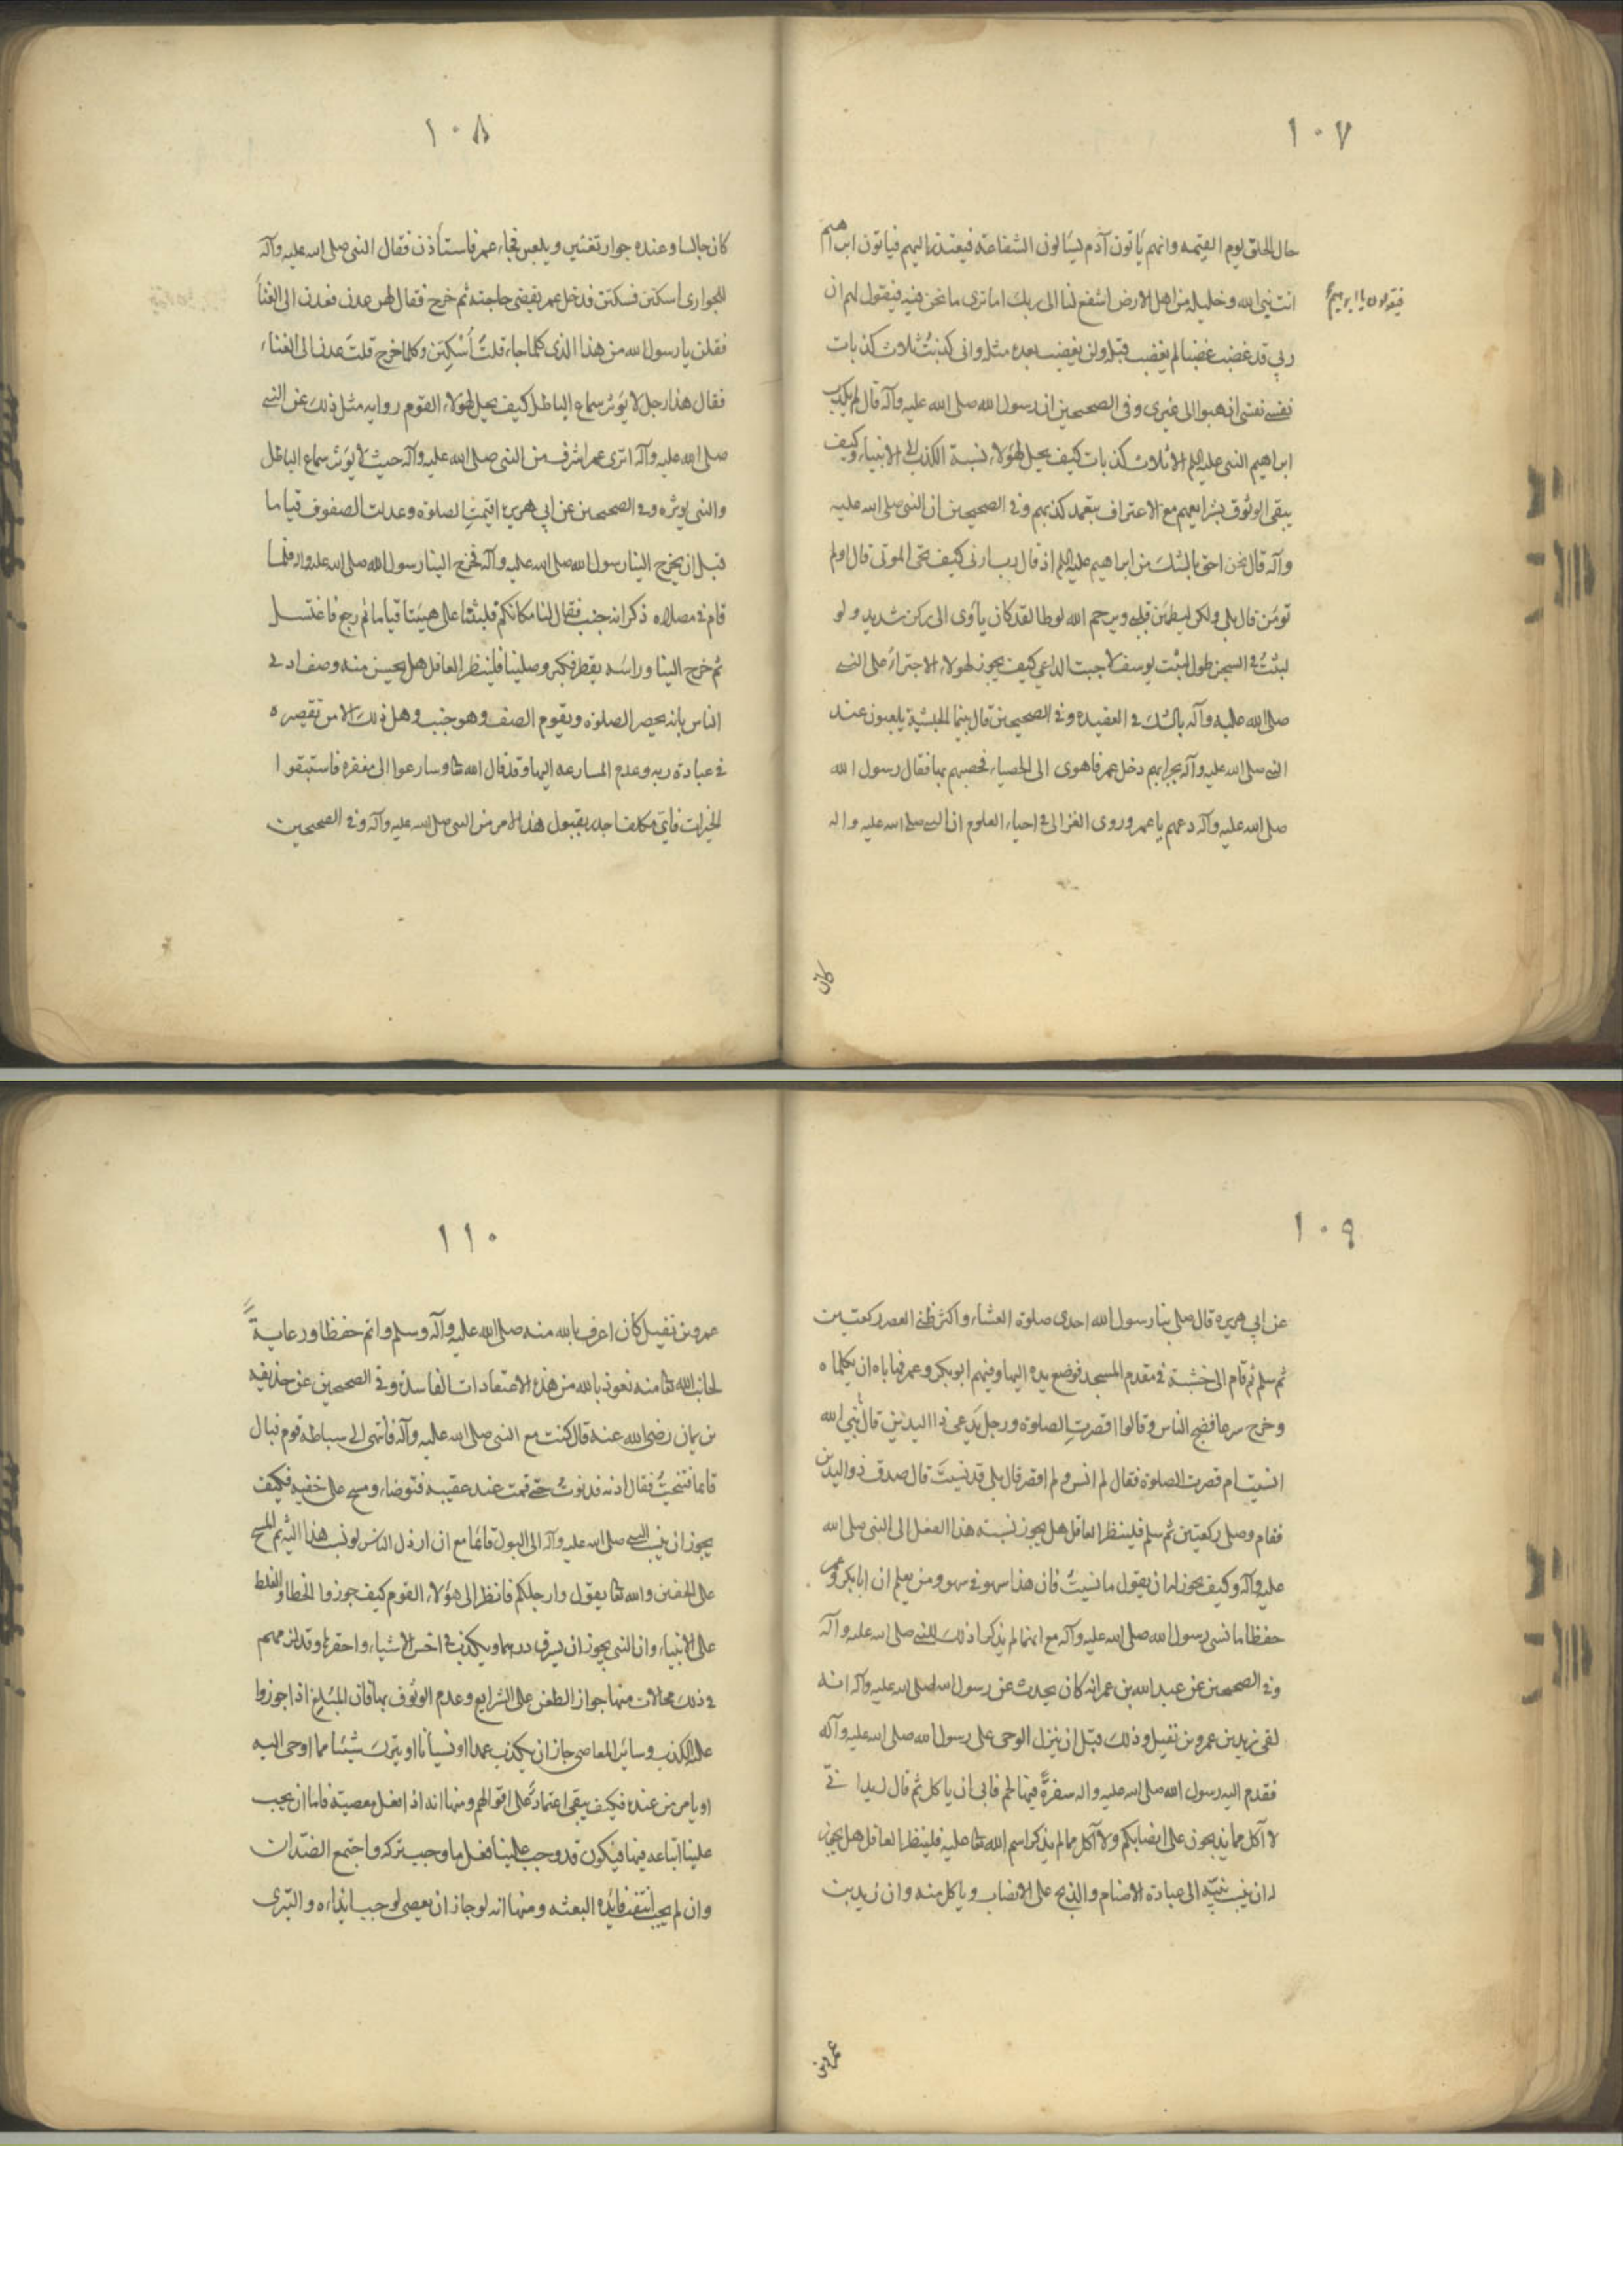 ١٠٧
حال الخلق يوم القيمه وانهم يأتون آدم يسألون الشفاعة فيعتذر اليهم فيأتون ابراهيم
فيقولون يا ابراهيم
انت نبي الله وخليله من اهل الارض اشفع لنا الى ربك اما ترى ما نحن فيه فيقول لهم ان
ربي قد غضب غضبا لم يغضب قبله ولن يغضب بعده مثله واني كذبتُ ثلاث كذبات
نفسي نفسي اذهبوا الى غيري وفي الصحيحين ان رسول الله صلى الله عليه وآله قال لم يكذب
ابراهيم النبي عليه السلم الا ثلاث كذبات كيف يحل لهؤلاء نسبة الكذب الى الانبياء وكيف
يبقى الوثوق بشرايعهم مع الاعتراف بتعمد كذبهم وفي الصحيحين ان النبي صلى الله عليه
وآله قال نحن احق بالشك من ابراهيم عليه السلم اذ قال رب ارني كيف تحي الموتى قال اولم
تؤمن قال بلى ولكن ليطمئن قلبي ويرحم الله لوطا لقد كان يأوى الى ركن شديد ولو
لبثتُ في السجن طول لبث يوسف لاجبت الداعي كيف يجوز لهولاء الاجتراء على النبي
صلى الله عليه وآله بالشك في العقيده وفي الصحيحين قال بينما الحبشة يلعبون عند
النبي صلى الله عليه وآله بحرابهم دخل عمر فاهوى الى الحصباء فحصبهم بها فقال رسول الله
صلى الله عليه وآله دعهم يا عمر وروى الغزالي في احياء العلوم ان النبي صلى الله عليه واله
كان
١٠٨
كان جالسا وعنده جوار تغنين ويلعبن فجاء عمر فاستأذن فقال النبي صلى الله عليه وآله
للجواري اسكتن فسكتن فدخل عمر يقضي حاجته ثم خرج فقال لهن عدنى فعدن الى الغنا
فقلن يا رسول الله من هذا الذي كلما جاء قلتَ أسْكِتن وكلما خرج قلتَ عدنى الى الغناء
فقال هذا رجل لا يؤثر سماع الباطل كيف يحل لهؤلاء القوم روايه مثل ذلك عن النبي
صلى الله عليه وآله اترى عمر اشرف من النبي صلى الله عليه وآله حيث لا يؤثر سماع الباطل
والنبي يوثره وفي الصحيحين عن ابي هريره اقيمتِ الصلوة وعدلت الصفوف قياما
قبل ان يخرج الينا رسول الله صلى الله عليه وآله فخرج الينا رسول الله صلى الله عليه واله فلما
قام في مصلاه ذكر انه جنب فقال لنا مكانكم فلبثنا على هيئتنا قياما ثم رجع فاغتسل
ثم خرج الينا وراسَه يقطر فكبر وصلينا فلينظر العاقل هل يحسن منه وصف ادنى
الناس بانه يحضر الصلوة ويقوم الصف وهو جنب وهل ذلك الا من تقصيره
في عبادة ربه وعدم المسارعه اليها وقد قال الله تعا وسارعوا الى مغفره فاستبقوا
الخيرات فاي مكلف اجدر بقبول هذا الامر من النبي صلى الله عليه وآله وفي الصحيحين
١٠٩
عن ابي هريره قال صلى بنا رسول الله احدى صلوة العشاء واكثر ظني العصر ركعتين
ثم سلم ثم قام الى خشبة في مقدم المسجد فوضع يده اليها وفيهم ابو بكر وعمر فهاباه ان يكلماه
وخرج سرعا فضج الناس وقالوا اقصرتِ الصلوة ورجل يَدعى ذا اليدَين قال نبي الله
انسيت ام قصرت الصلوة فقال لم انس ولم اقصر قال بلى قد نسيتَ قال صدق ذو اليدين
فقام وصلى ركعتين ثم سلم فلينظر العاقل هل يجوز نسبته هذا الفعل الى النبي صلى الله
عليه وآله وكيف يجوز له ان يقول ما نسيتُ فان هذا سهو في سهو ومن يعلم ان ابا بكر وعمر
حفظا ما نسى رسول الله صلى الله عليه وآله مع انهما لم يذكرا ذلك للنبي صلى الله عليه وآله
وفي الصحيحين عن عبد الله بن عمر انه كان يحدث عن رسول الله صلى الله عليه وآله انه
لقى زيد بن عمرو بن نفيل وذلك قبل ان ينزل الوحى على رسول الله صلى الله عليه وآله
فقدم اليه رسول الله صلى الله عليه واله سفرةً فيها لحم فابى ان ياكل ثم قال زيد انى
لا آكل مما يذبحون على انصابكم ولا آكل مما لم يذكر اسم الله تعا عليه فلينظر العاقل هل يجوز
له ان ينسب نبيّه الى عبادة الاصنام والذبح على الانصاب وياكل منه وان زيد بن
عمرو بن
١١٠
عمرو بن نفيل كان اعرف بالله منه صلى الله عليه وآله وسلم واتم حفظا ورعايةً
لجانب الله تعا منه نعوذ بالله من هذه الاعتقادات الفاسدة وفي الصحيحين عن حذيفه
بن يمان رضي الله عنه قال كنت مع النبي صلى الله عليه وآله فانتهى الى سباطة قوم فبال
قائما فتنحيتُ فقال ادنه فدنوتُ حتى قمت عند عقيبه فتوضاء ومسح على خفيه فكيف
يجوز ان ينسب النبي صلى الله عليه وآله الى البول قائما مع ان ارذل الناس لو نسب هذا اليه ثم المسح
على الخفين والله تعا يقول وارجلكم فانظر الى هؤلاء القوم كيف جوزوا الخطا والغلط
على الانبياء وان النبي يجوز ان يسرق درهما ويكذب في اخس الاشياء واحقرها وقد لزمهم
في ذلك محالات منها جواز الطعن على الشرايع وعدم الوثوق بها فان المبُلغ اذا جوزوا
عليه الكذب وسائر المعاصي جاز ان يكذب عمدا او نسيانا او يترك شيئا مما اوحى اليه
او يامر من عنده فكيف يبقى اعتمادٌ على اقوالهم ومنها انه اذا فعل معصية فاما ان يجب
علينا اتباعه فيها فيكون قد وجب علينا فعل ما وجب تركه واجتمع الضدّان
وان لم يجب انتفت فائدة البعثه ومنها انه لو جاز ان يعصى لوجب ايذاءه والتبرى